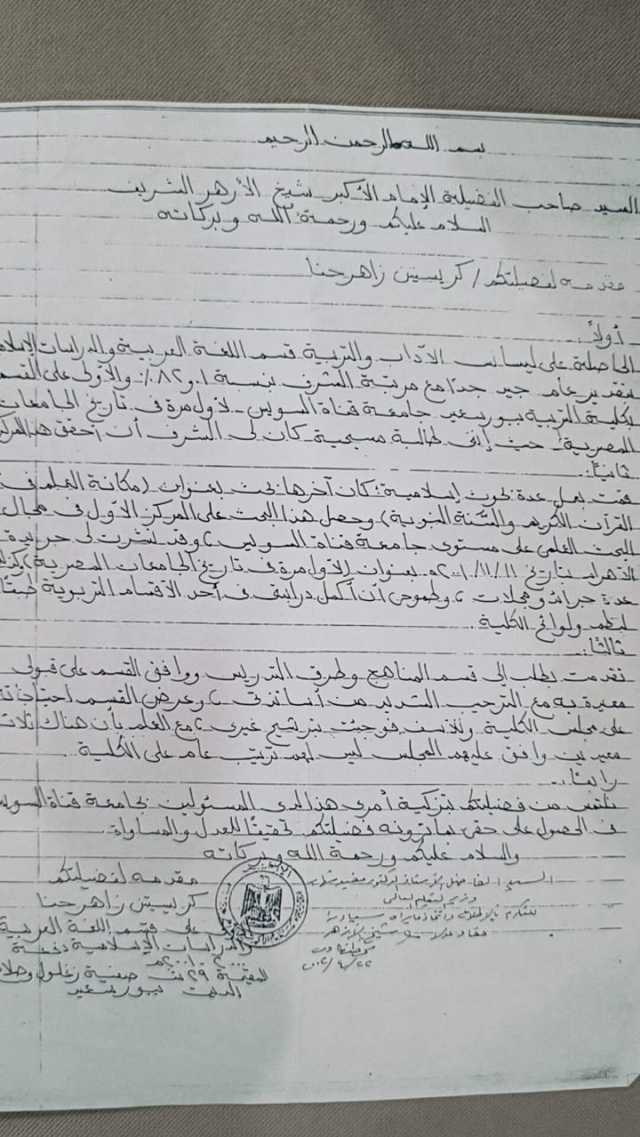 بسم الله الرحمن الرحيم
السيد صاحب الفضيلة الإمام الأكبر شيخ الأزهر الشريف
السلام عليكم ورحمة الله وبركاته
مقدمه لفضيلتكم / كريستين زاهر حنا
أولاً:
الحاصلة على ليسانس الآداب والتربية قسم اللغة العربية والدراسات الإسلا
بتقدير عام جيد جداً مع مرتبة الشرف بنسبة ٨٢٫١٪ والأولى على القسم
بكلية التربية ببورسعيد جامعة قناة السويس - لأول مرة فى تاريخ الجامعات
المصرية، حيث إننى طالبة مسيحية كان لى الشرف أن أحقق هذا المركز
ثانياً:
قمت بعمل عدة بحوث إسلامية، كان آخرها بحث بعنوان (مكانة العلم فى
القرآن الكريم والسنة النبوية) وحصل هذا البحث على المركز الأول فى مجال
البحث العلمى على مستوى جامعة قناة السويس، وقد نشرت لى جريدة
الأهرام بتاريخ ٢٠٠١/١١/١١ بعنوان (لأول مرة فى تاريخ الجامعات المصرية)
عدة جرائد ومجلات، وطموحى أن أكمل دراستى فى أحد الأقسام التربوية طبقاً
لنظم ولوائح الكلية.
ثالثاً:
تقدمت بطلب إلى قسم المناهج وطرق التدريس ووافق القسم على قبولى
معيدة به مع الترحيب الشديد من أساتذتى، وعرض القسم احتياجاته
على مجلس الكلية. وللأسف فوجئت بترشيح غيرى، مع العلم بأن هناك ثلاث
معيدين وافق عليهم المجلس ليس لهم ترتيب عام على الكلية.
رابعاً:
ملتمس من فضيلتكم تزكية أمرى هذا لدى المسئولين بجامعة قناة السويس
فى الحصول على حقى بما ترونه فضيلتكم تحقيقاً للعدل والمساواة.
والسلام عليكم ورحمة الله وبركاته
مقدمه لفضيلتكم
كريستين زاهر حنا
على قسم اللغة العربية
والدراسات الإسلامية دفعة
المقيمة ٢٩ ش صفية زغلول
بورسعيد
السيد الأستاذ الدكتور مفيد شهاب
وزير التعليم العالى
شيخ الأزهر